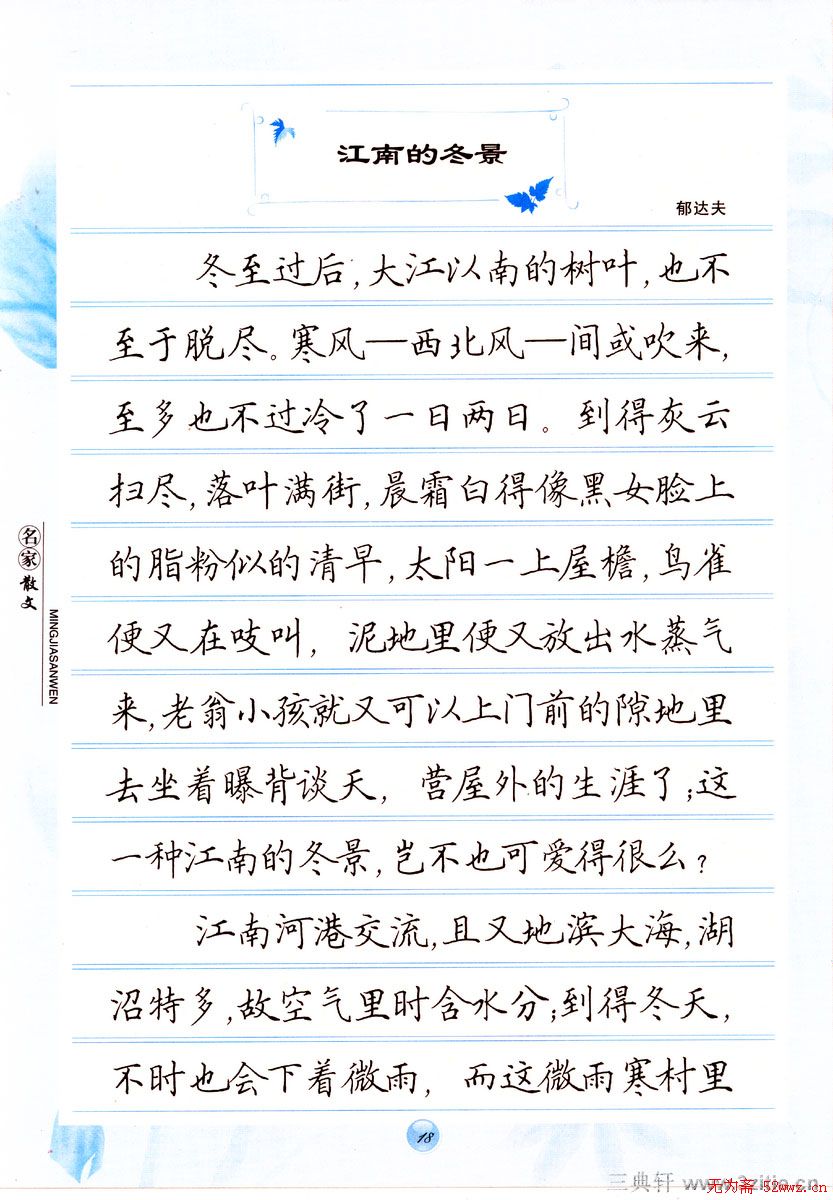 江南的冬景
郁达夫
冬至过后,大江以南的树叶,也不
至于脱尽。寒风—西北风—间或吹来,
至多也不过冷了一日两日。到得灰云
扫尽,落叶满街,晨霜白得像黑女脸上
的脂粉似的清早,太阳一上屋檐,鸟雀
便又在吱叫,泥地里便又放出水蒸气
来,老翁小孩就又可以上门前的隙地里
去坐着曝背谈天,营屋外的生涯了;这
一种江南的冬景,岂不也可爱得很么?
江南河港交流,且又地滨大海,湖
沼特多,故空气里时含水分;到得冬天,
不时也会下着微雨,而这微雨寒村里
名家散文
MINGJIASANWEN
18
三典轩 www.
无为斋 52wwz.cn